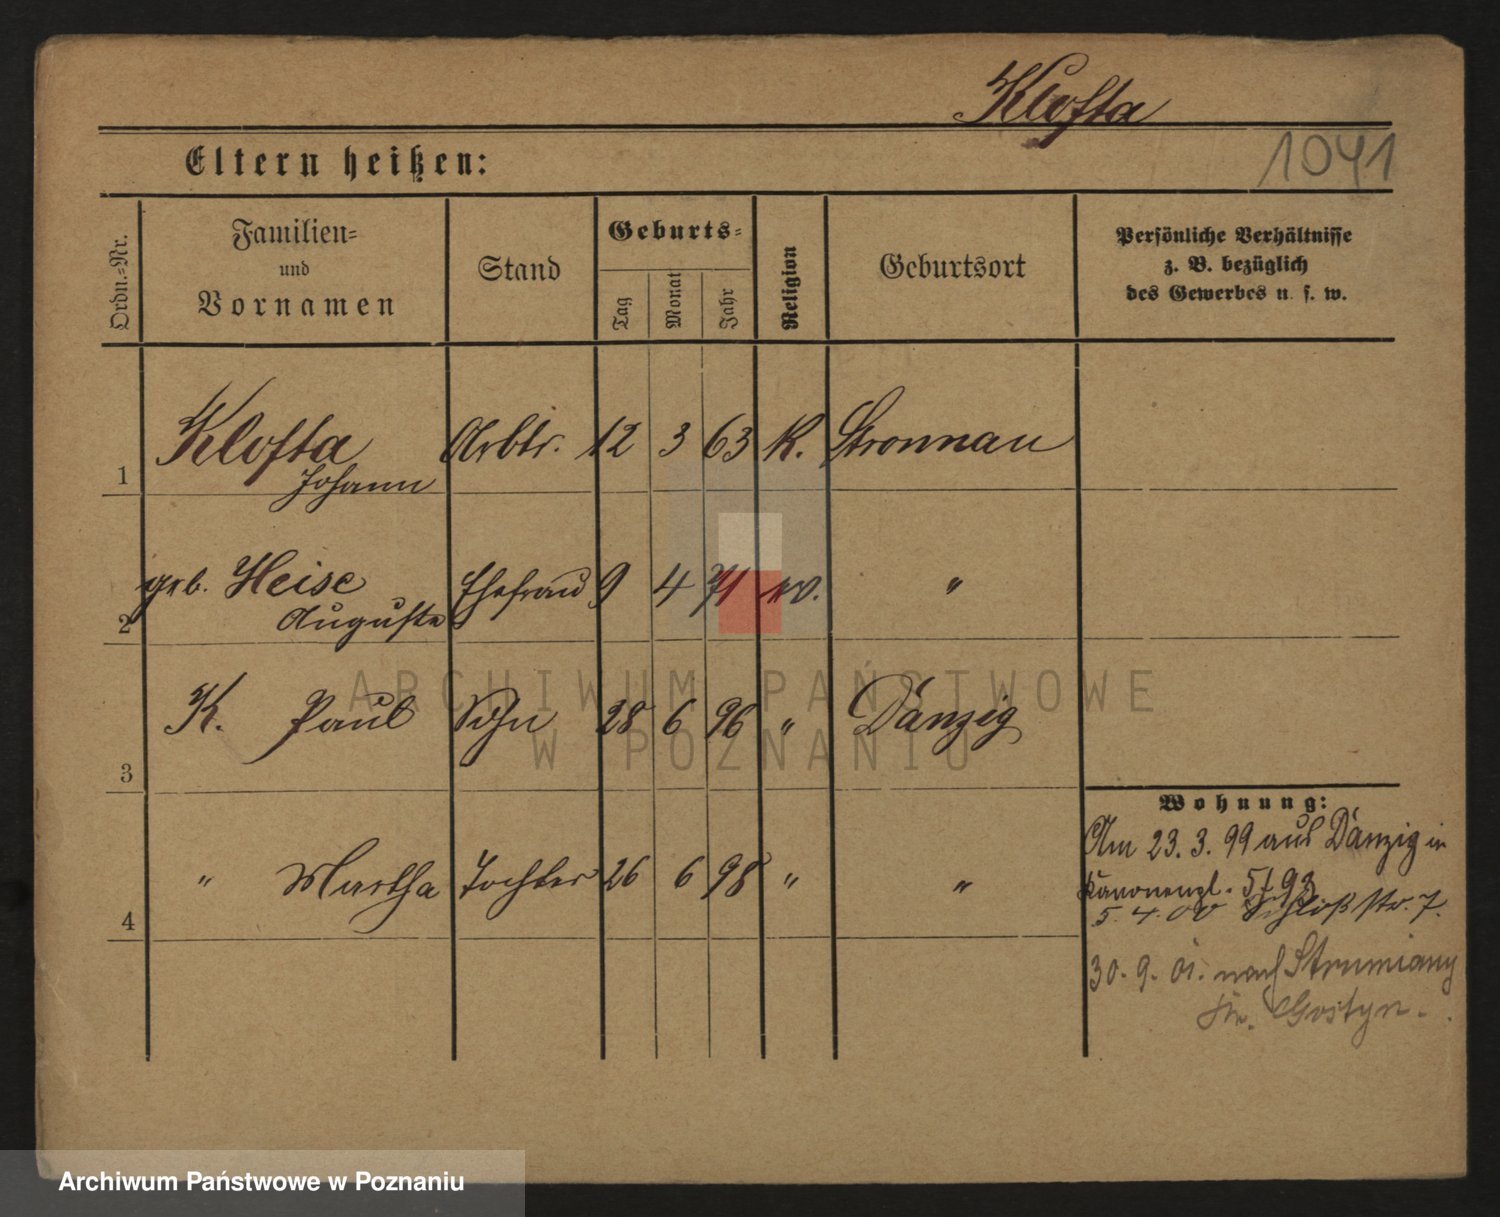 Klofta
1041
Eltern heißen:
Ordn.=Nr.
Familien=
und
Vornamen
Stand
Geburts=
Tag
Monat
Jahr
Religion
Geburtsort
Persönliche Verhältnisse
z. B. bezüglich
des Gewerbes u. s. w.
1 Klofta Arbtr. 12 3 63 K. Stronnau
Johann
geb. Heise Ehefrau 9 4 71 ev. "
2 Auguste
K. Paul Sohn 28 6 96 " Danzig
3
" Martha Tochter 26 6 98 " "
4
Wohnung:
Am 23. 3. 99 aus Danzig in
Kanonenpl. 5/ 93
5. 4. 00 Schloßstr. 7.
30. 9. 01. nach Strumiany
Kr. Gostyn.
ARCHIWUM PAŃSTWOWE
W POZNANIU
Archiwum Państwowe w Poznaniu